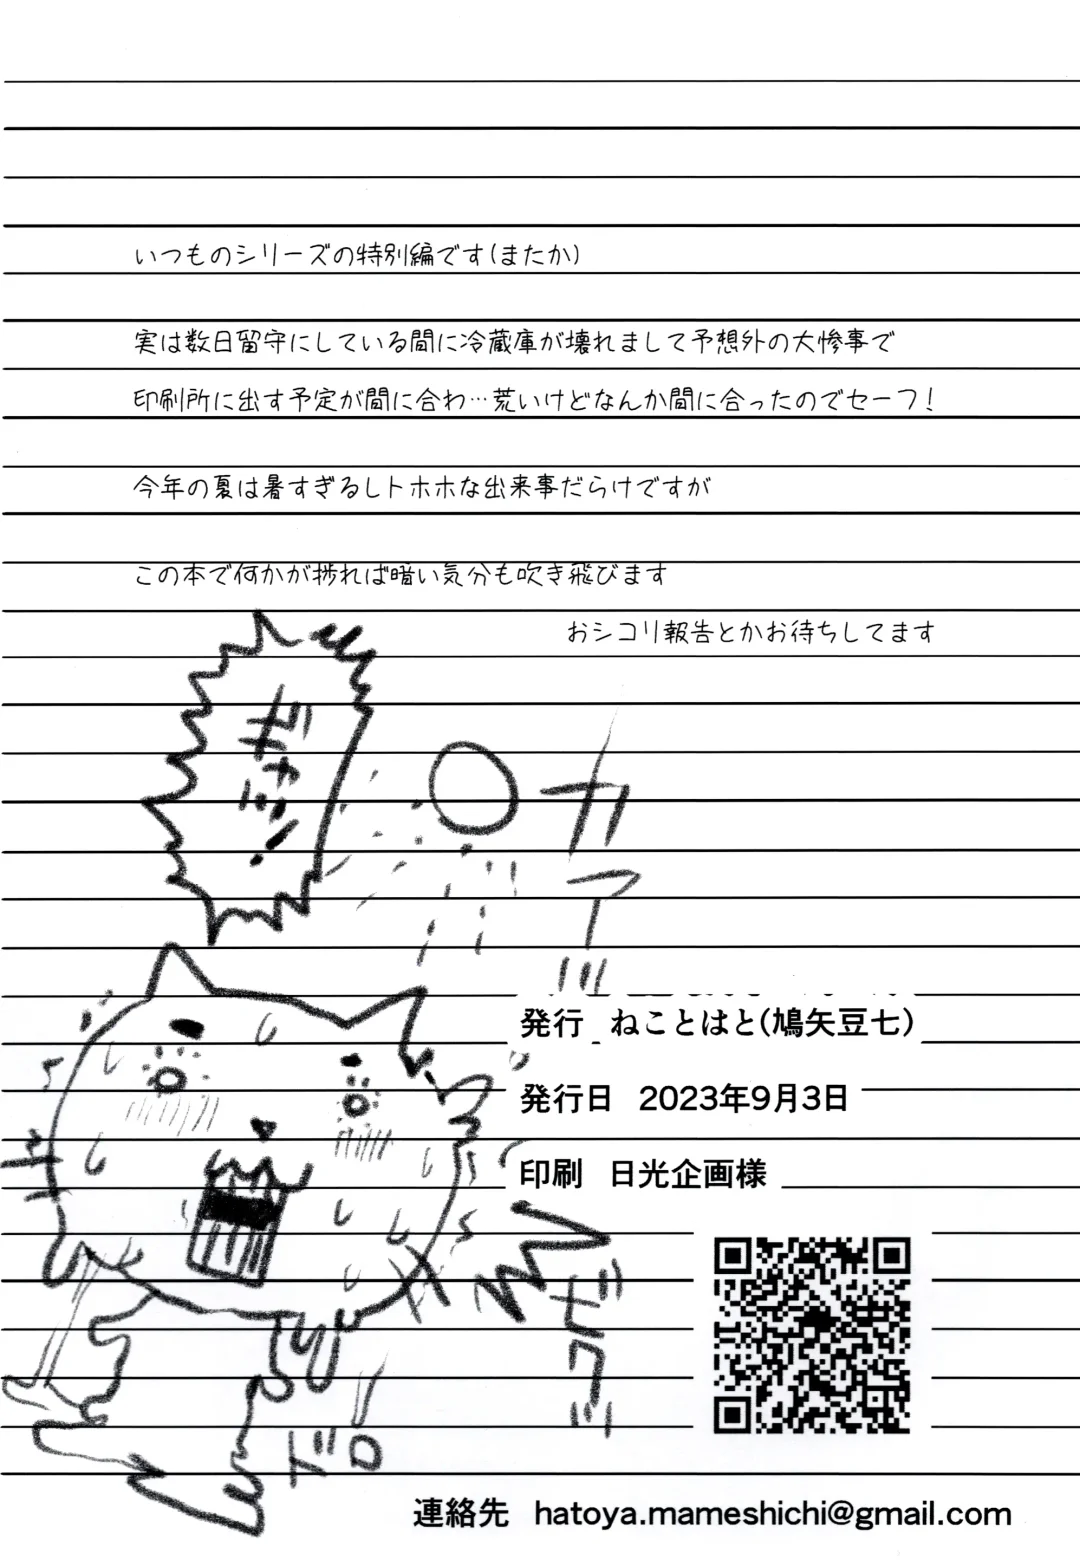 いつものシリーズの特別編です(またか)
実は数日留守にしている間に冷蔵庫が壊れまして予想外の大惨事で
印刷所に出す予定が間に合わ…荒いけどなんか間に合ったのでセーフ!
今年の夏は暑すぎるしトホホな出来事だらけですが
この本で何かが捗れば暗い気分も吹き飛びます
おシコリ報告とかお待ちしてます
ギャッ!
発行 ねことはと(鳩矢豆七)
発行日 2023年9月3日
印刷 日光企画様
ドロ
連絡先 hatoya.mameshichi@gmail.com